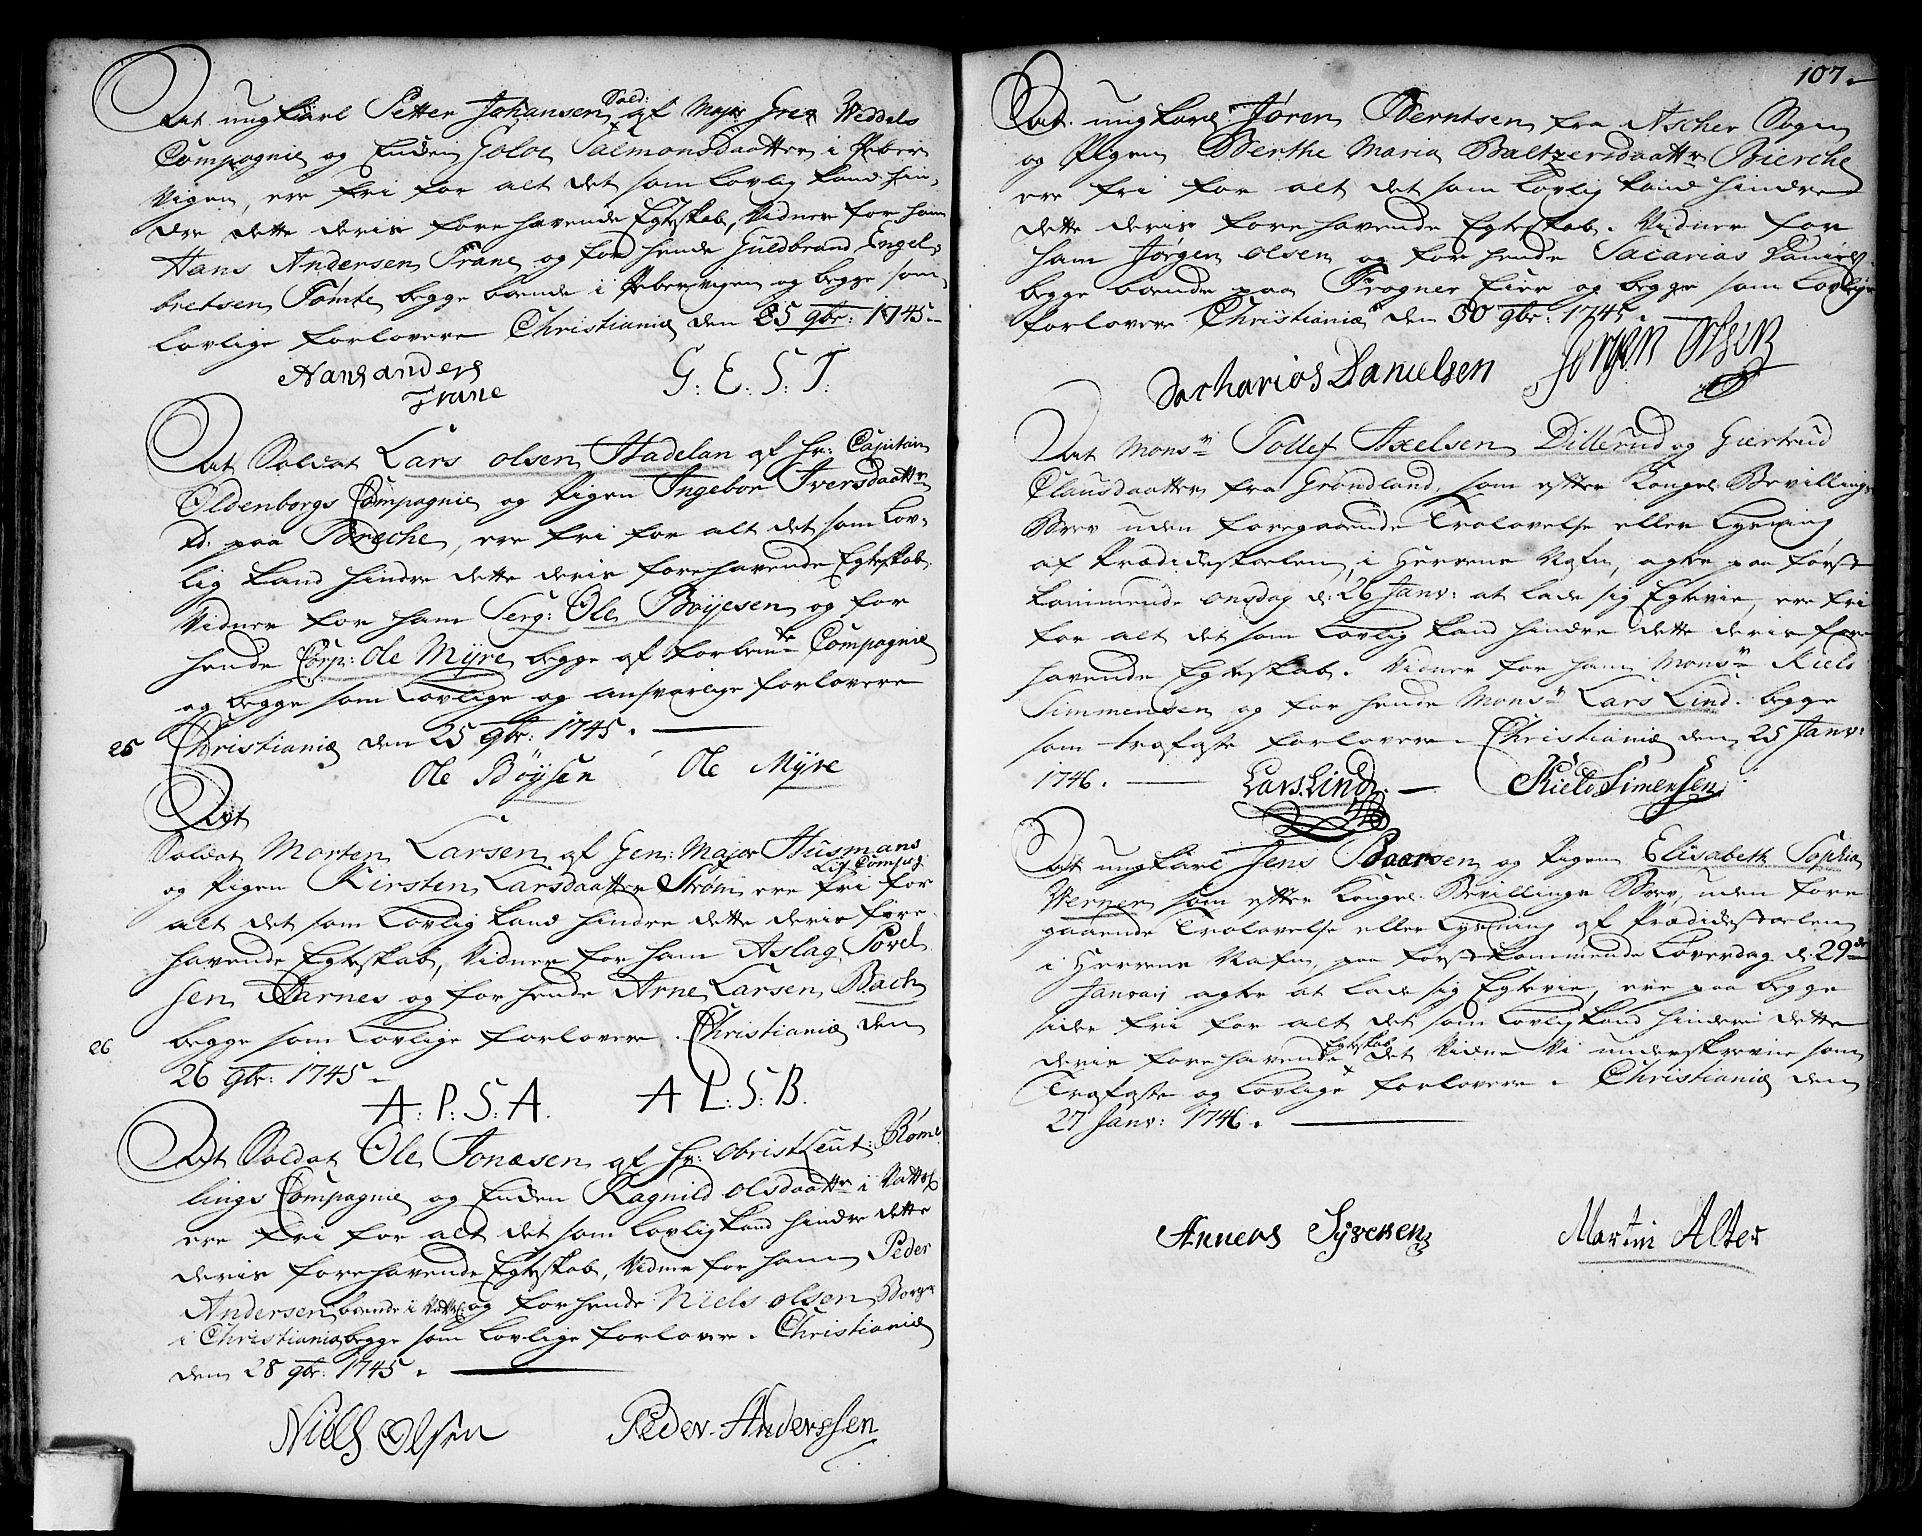 Sold:
At ungkarl Petter Johansen af Major Grev Weddels
Compagnie og Enken Goloe Salmonsdaatter i Peber
Vigen, ere fri for alt det som Lovlig kand hin-
dre dette deris forehavende Egteskab, Vidner for ham
Hans Andersen Trane og for hende Guldbrand Engel-
bretsen Tomte begge boende i Pebervigen og begge som
lovlige forlovere Christiania den 25 9br: 1745.
Hans anders
Trane
G: E: S: T:
At Soldat Lars olsen Hadelan af Hr: Capitain
Oldenborgs Compagnie og Pigen Ingebor Iversdaatter
paa Bræche, ere fri for alt det som Lov-
lig kand hindre dette deris forehavende Egteskab
Vidner for ham Serg: Ole Böyesen og for
hende Corp: Ole Myre begge af Compagnie
og begge som Lovlige og ansvarlige forlovere
25
Christiania den 25 9br: 1745.
Ole Böysen Ole Myre
At
Soldat Morten Larsen af Gen: Major Husmans
Lif Comp:
og Pigen Kirsten Larsdaatter Strøm ere fri for
alt det som Lovlig kand hindre dette deris fore-
havende Egteskab, Vidner for ham Aslag Povel
sen Aarnes og for hende Arne Larsen Bach
begge som Lovlige forlovere. Christiania den
26
26 9br: 1745.
A: P: S: A. A L: S: B.
At Soldat Ole Jonæsen af Hr: Obristl Leut: Røme
lings Compagnie og Enken Ragnild olsdaatter i
ere fri for alt det som Lovlig kand hindre dette
deris forehavende Egteskab, Vidner for ham Peder
Andersen boende i og for hende Niels olsen Borger
i Christiania begge som Lovlige forlovere. Christiania
den 28 9br: 1745.
Niels Olsen Peder Anderssen
107.
At ungkarl Jøren Berntsen fra Ascher Sogn
og Pigen Berthe Maria Baltzersdaatter Bierche
ere fri for alt det som Lovlig kand hindre
dette deris forehavende Egteskab. Vidner for
ham Jørgen olsen og for hende Sacarias Daniels
begge boende paa Frogner Eier og begge som Lovlige
forlovere Christiania den 30 9br: 1745.
Zacharias Danielsen Jørgen Olsen
At Monsr Tollef Axelsen Dillerud og Giertrud
Clausdaatter fra Grønland, som efter Kongel: Bevillings
Brev uden foregaaende Trolovelse eller Lysning
af Prædickestoelen, i Herrens Nafn, agter paa først
kommende onsdag d: 26 Janv: at lade sig Egtevie, ere fri
for alt det som Lovlig kand hindre dette deris fore
havende Egteskab. Vidner for ham Monsr Kield
Simmensen og for hende Monsr Lars Lind. begge
som trofaste forlovere. Christiania den 25 Janv:
1746.
Lars Lind. Kield Simensen
At ungkarl Jens Baarsen og Pigen Elisabeth Sophia
Werner som efter Kongel: Bevillings Brev, uden fore
gaaende Trolovelse eller Lysning af Prædickestoelen
i Herrens Nafn, paa førstkommende Løverdag d: 29de
Januarj agter at lade sig Egtevie, ere paa begge
sider fri for alt det som Lovlig kand hindre dette
Egteskab
deris forehavende det Vidne Vi underskrevne som
Trofaste og Lovlige forlovere. Christiania den
27 Janv: 1746.
Anners Syversen Martin Alter